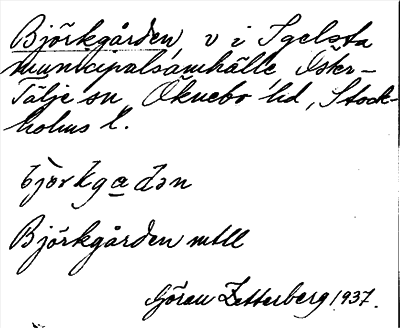 Björkgården, v i Igelsta
municipalsamhälle Öster-
Tälje sn Öknebo hd, Stock-
holms l.
björkgadən
Björkgården mtll
Göran Zetterberg 1937.